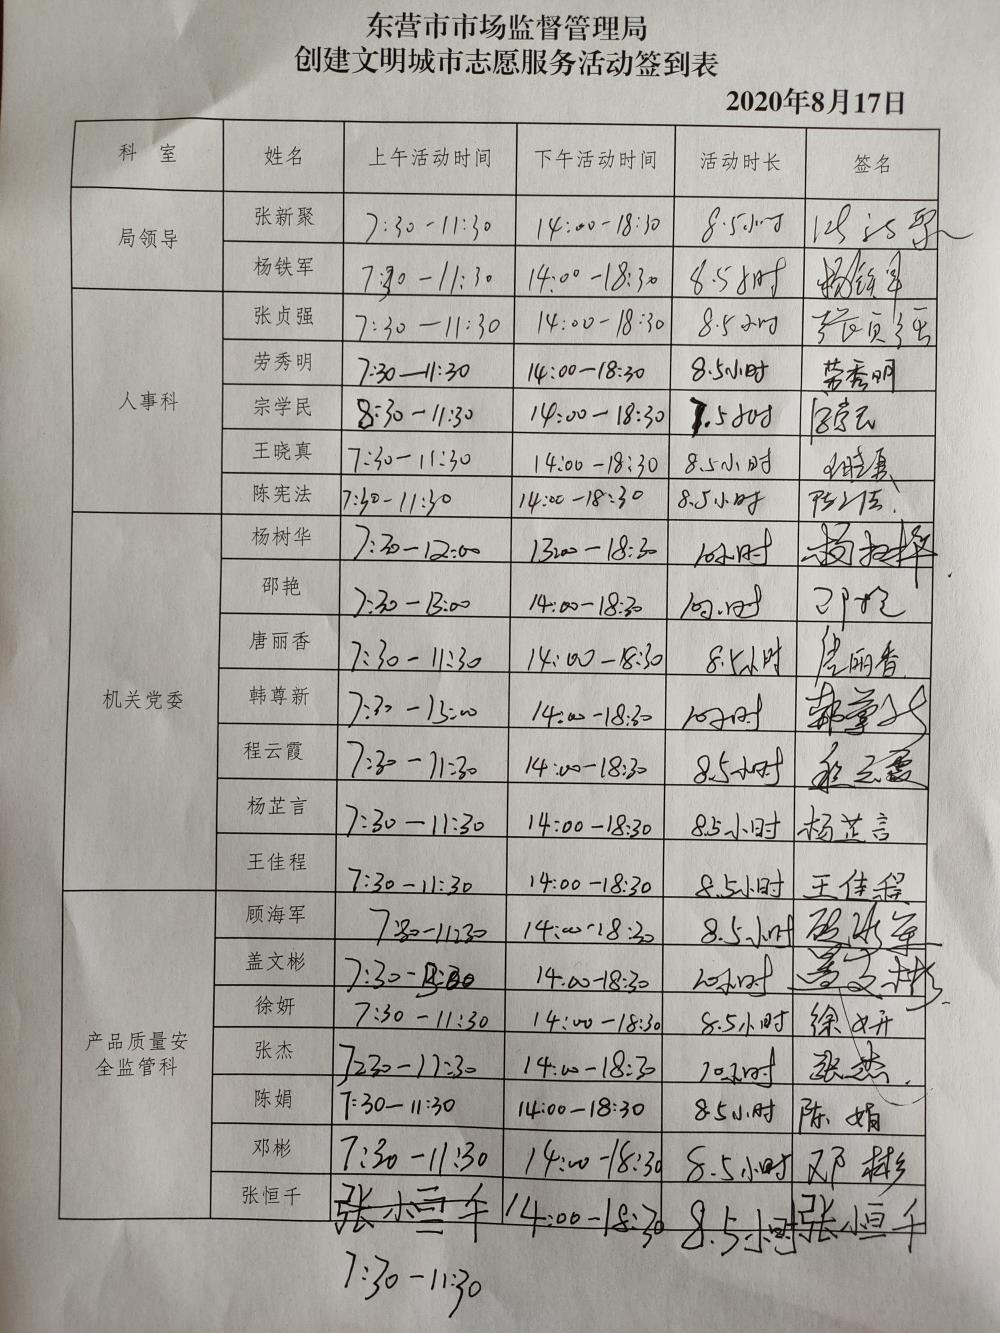 东营市市场监督管理局
创建文明城市志愿服务活动签到表
2020年8月17日
科 室 姓名 上午活动时间 下午活动时间 活动时长 签名
局领导
张新聚 7:30-11:30 14:00-18:30 8.5小时
杨铁军 7:30-11:30 14:00-18:30 8.5小时 杨铁军
人事科
张贞强 7:30-11:30 14:00-18:30 8.5小时 张贞强
劳秀明 7:30-11:30 14:00-18:30 8.5小时 劳秀明
宗学民 8:30-11:30 14:00-18:30 7.5小时 宗学民
王晓真 7:30-11:30 14:00-18:30 8.5小时 王晓真
陈宪法 7:30-11:30 14:00-18:30 8.5小时
机关党委
杨树华 7:30-12:00 13:00-18:30 10小时 杨树华
邵艳 7:30-13:00 14:00-18:30 10小时 邵艳
唐丽香 7:30-11:30 14:00-18:30 8.5小时 唐丽香
韩尊新 7:30-13:00 14:00-18:30 10小时 韩尊新
程云霞 7:30-11:30 14:00-18:30 8.5小时 程云霞
杨芷言 7:30-11:30 14:00-18:30 8.5小时 杨芷言
王佳程 7:30-11:30 14:00-18:30 8.5小时 王佳程
产品质量安
全监管科
顾海军 7:30-11:30 14:00-18:30 8.5小时 顾海军
盖文彬 7:30- 14:00-18:30 10小时 盖文彬
徐妍 7:30-11:30 14:00-18:30 8.5小时 徐妍
张杰 7:30-11:30 14:00-18:30 10小时 张杰
陈娟 7:30-11:30 14:00-18:30 8.5小时 陈娟
邓彬 7:30-11:30 14:00-18:30 8.5小时 邓彬
张恒千 张恒千 14:00-18:30 8.5小时 张恒千
7:30-11:30